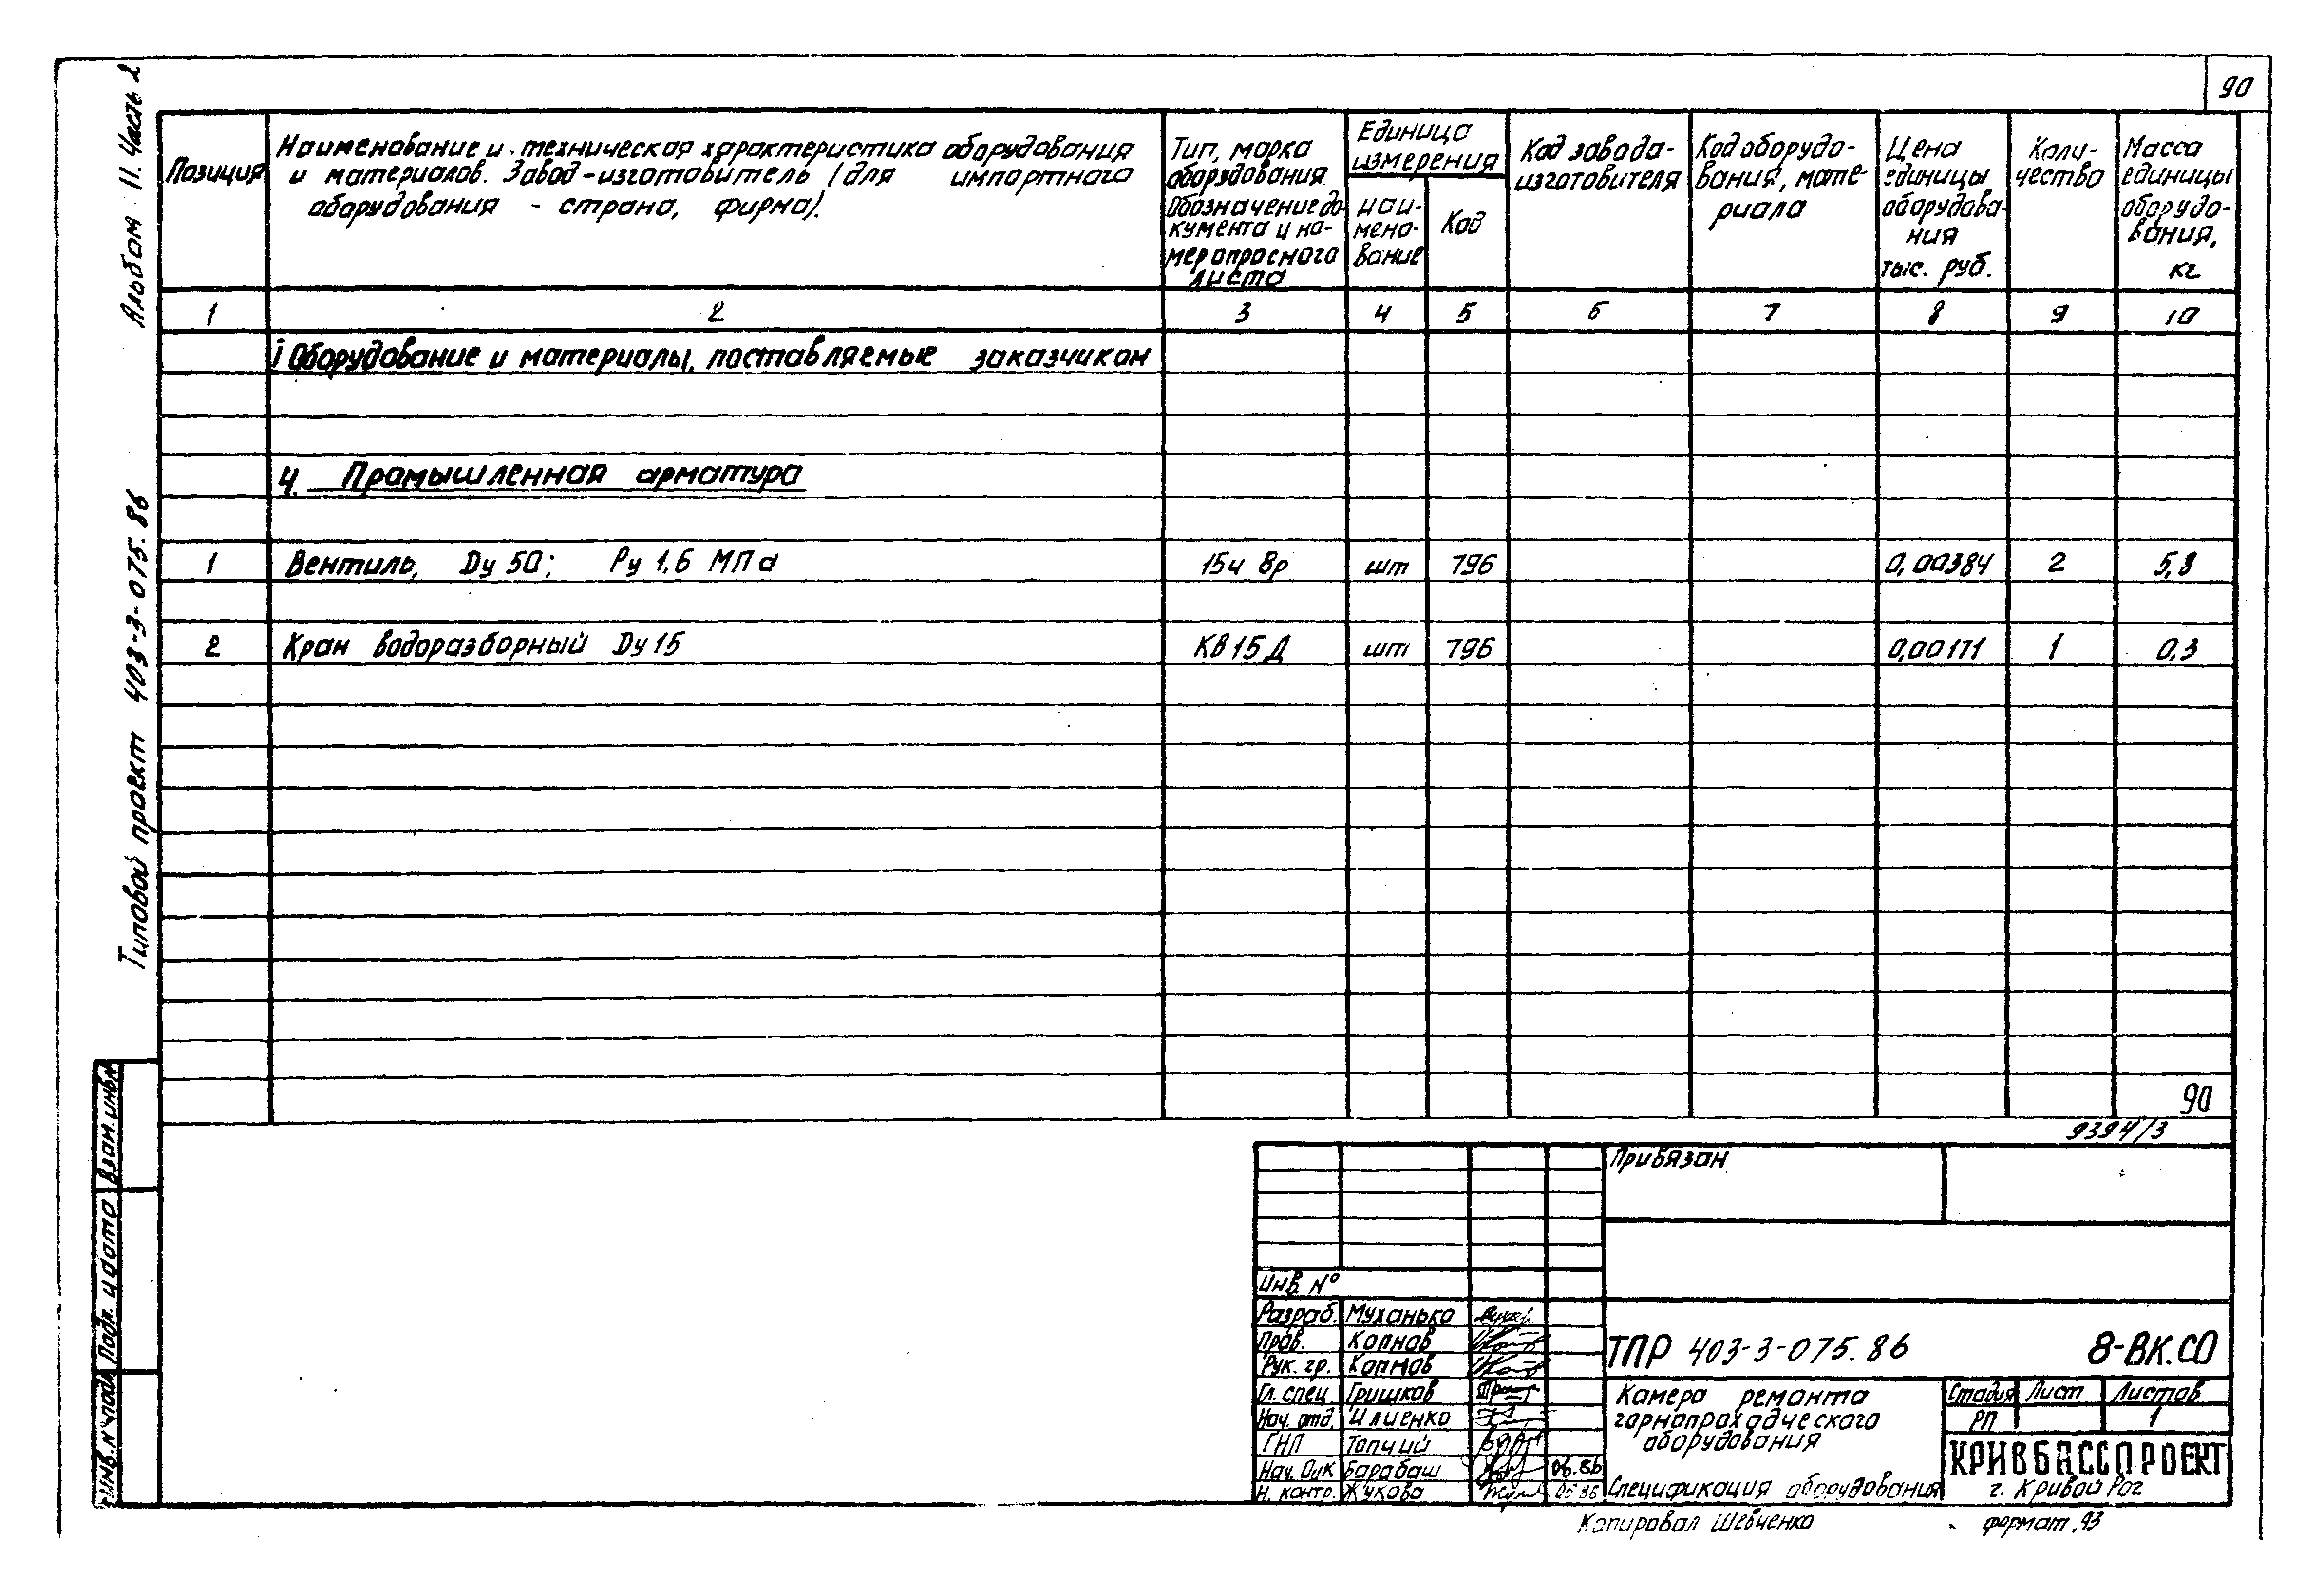 90
Альбом II. Часть 2
Типовой проект 403-3-075.86
Позиция
Наименование и техническая характеристика оборудования
и материалов. Завод-изготовитель (для импортного
оборудования - страна, фирма).
Тип, марка
оборудования.
Обозначение до-
кумента и но-
мер опросного
листа
Единица
измерения
наи-
мено-
вание
Код
Код завода-
изготовителя
Код оборудо-
вания, мате-
риала
Цена
единицы
оборудова-
ния
тыс. руб.
Коли-
чество
Масса
единицы
оборудо-
вания,
кг
1 2 3 4 5 6 7 8 9 10
I Оборудование и материалы, поставляемые заказчиком
4. Промышленная арматура
1 Вентиль, Dу 50; Ру 1.6 МПа 15ч 8р шт 796 0,00384 2 5,8
2 Кран водоразборный Dу 15 КВ 15 Д шт 796 0,00171 1 0,3
90
9394/3
Взам. инв. №
Подп. и дата
Инв. № подл.
Привязан
Инв. №
Разраб. Муханько
Пров. Копнов
Рук. гр. Копнов
Гл. спец. Гришков
Нач. отд. Илиенко
ГИП Топчий
Нач. ОиК Барабаш 06.86
Н. контр. Жукова 06 86
ТПР 403-3-075.86 8-ВК.СО
Камера ремонта
горнопроходческого
оборудования
Спецификация оборудования
Стадия Лист Листов
РП 1
КРИВБАССПРОЕКТ
г. Кривой Рог
Копировал Шевченко
формат А3